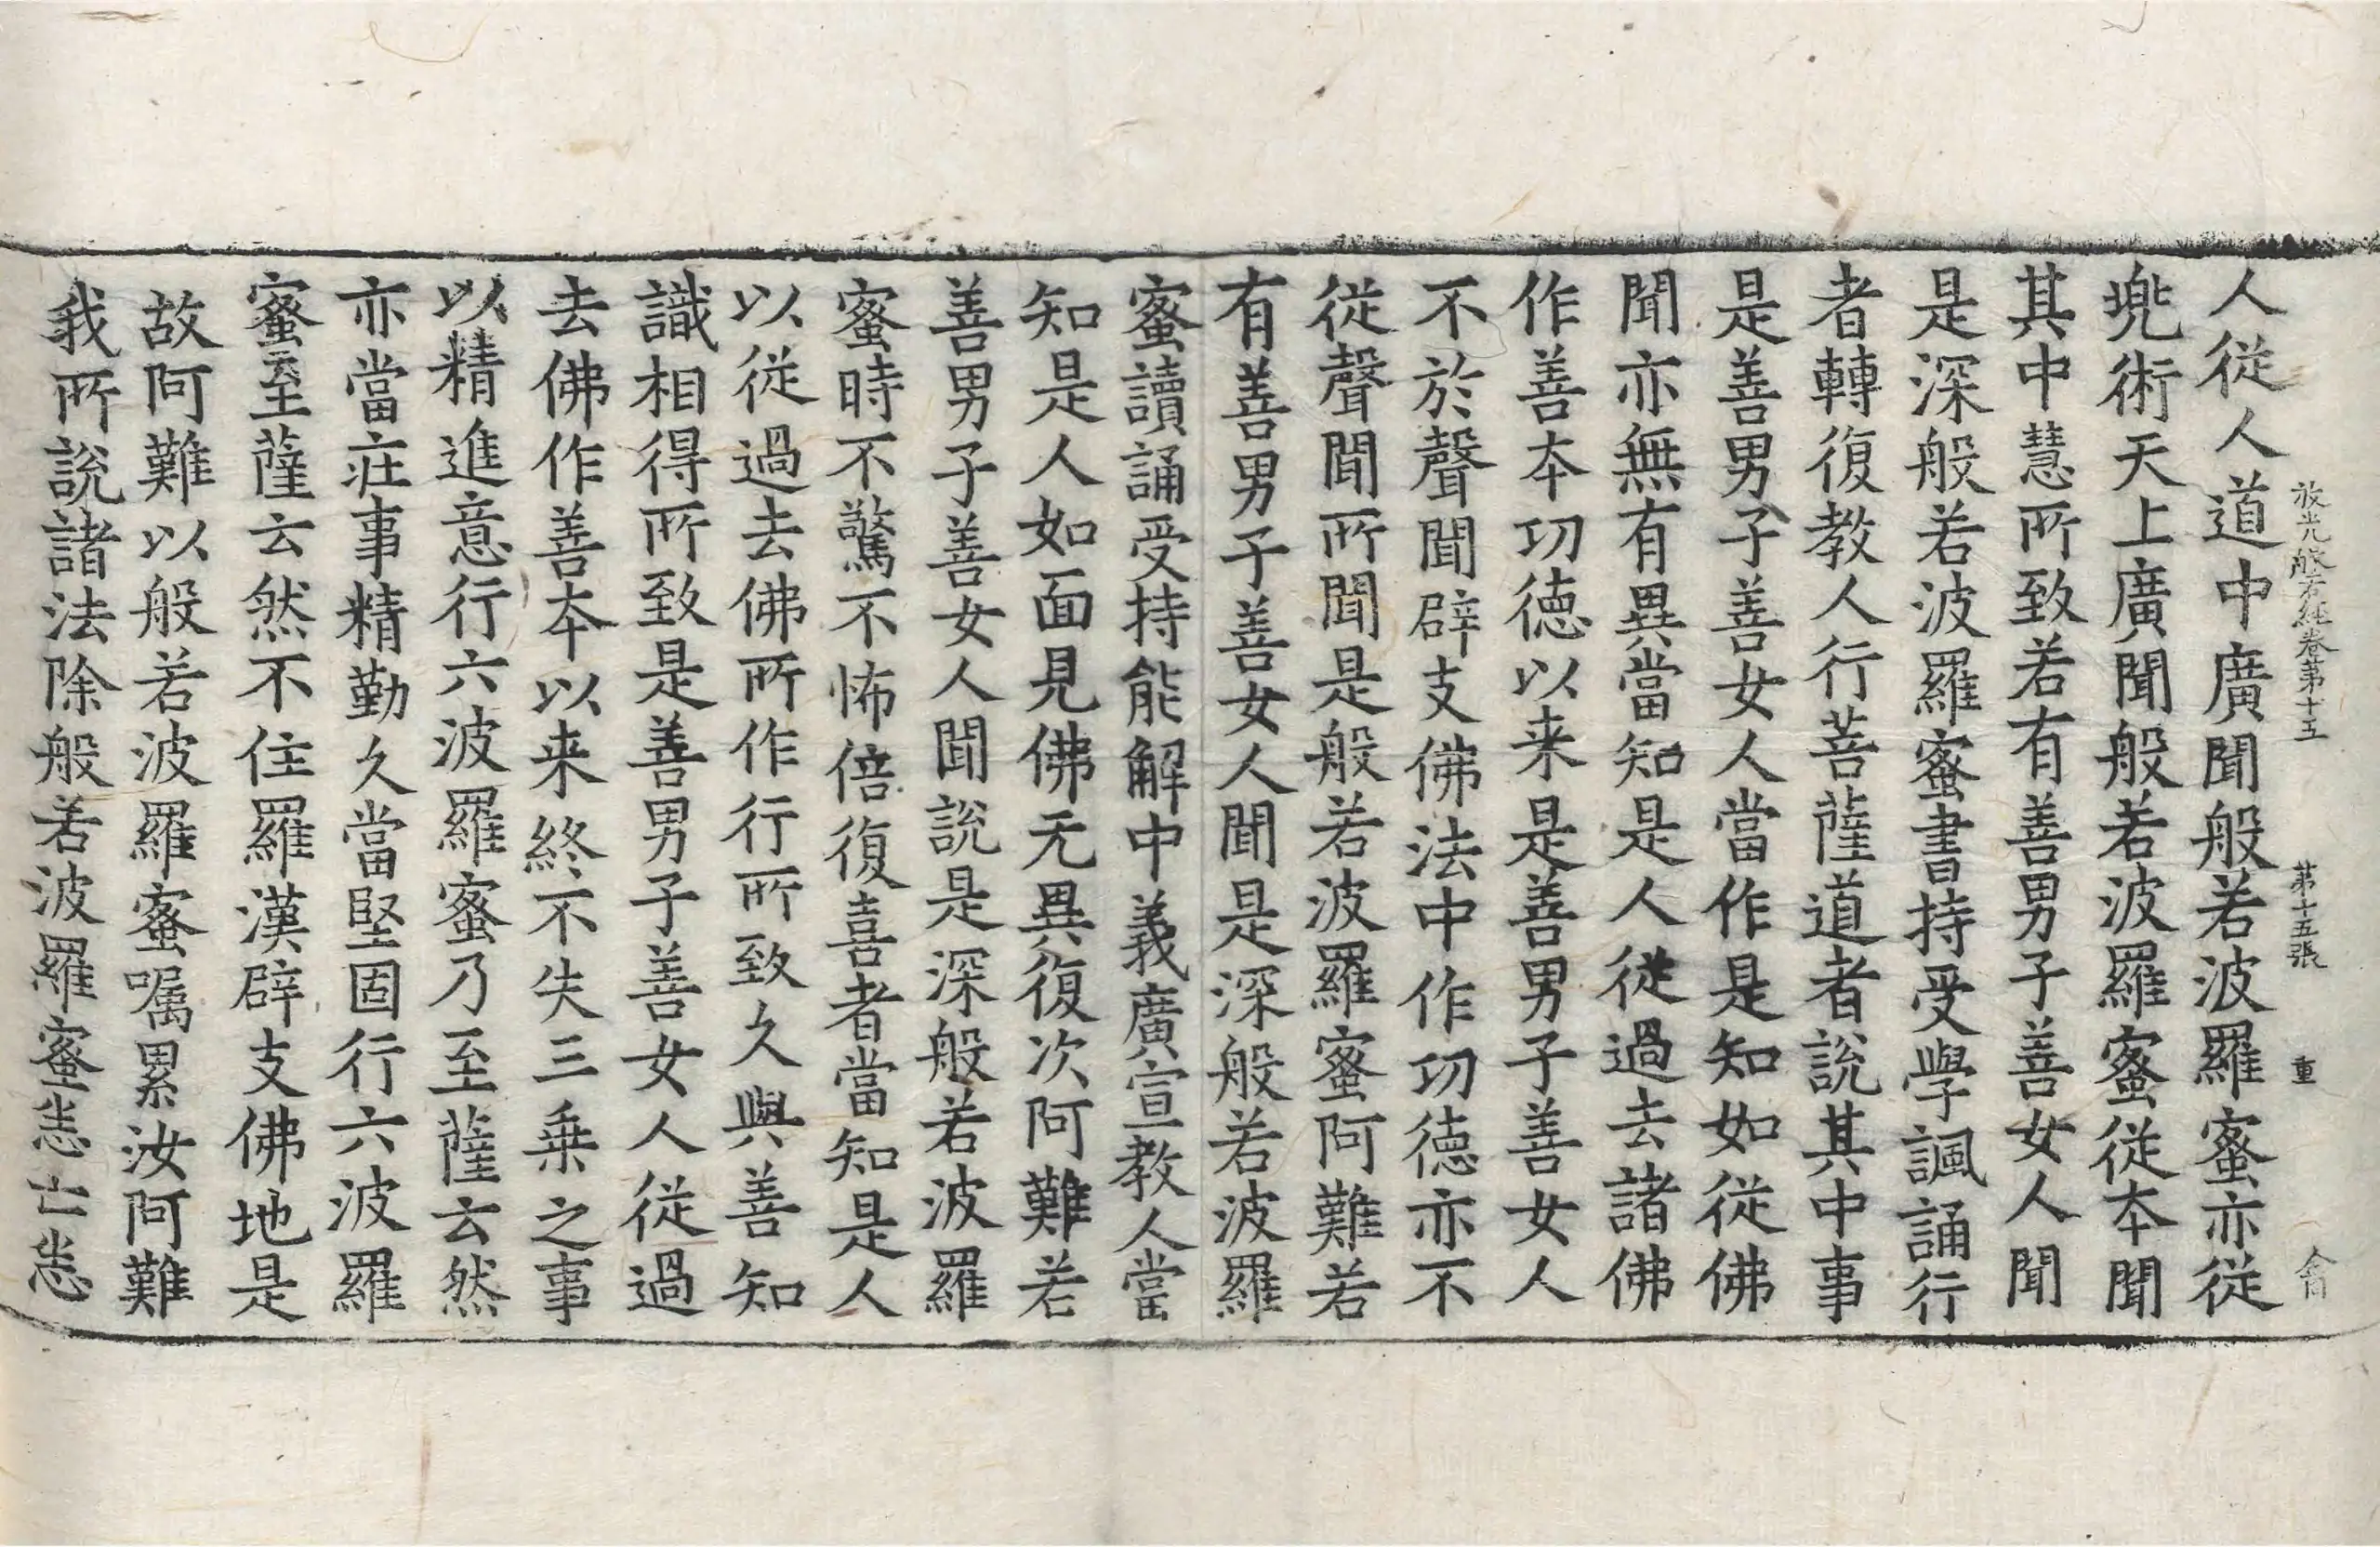 放光般若經卷第十五 第十五張 重
人從人道中廣聞般若波羅蜜亦從
兜術天上廣聞般若波羅蜜從夲聞
其中慧所致若有善男子善女人聞
是深般若波羅蜜書持受學諷誦行
者轉復教人行菩薩道者說其中事
是善男子善女人當作是知如從佛
聞亦無有異當知是人從過去諸佛
作善夲功德以来是善男子善女人
不於聲聞辟支佛法中作功德亦不
從聲聞所聞是般若波羅蜜阿難若
有善男子善女人聞是深般若波羅
蜜讀誦受持能解中義廣宣教人當
知是人如面見佛无異復次阿難若
善男子善女人聞說是深般若波羅
蜜時不驚不怖倍復喜者當知是人
以從過去佛所作行所致久與善知
識相得所致是善男子善女人從過
去佛作善夲以来終不失三乗之事
以精進意行六波羅蜜乃至薩云然
亦當庄事精勤久當堅固行六波羅
蜜至薩云然不住羅漢辟支佛地是
故阿難以般若波羅蜜嘱累汝阿難
我所說諸法除般若波羅蜜恙亡恙